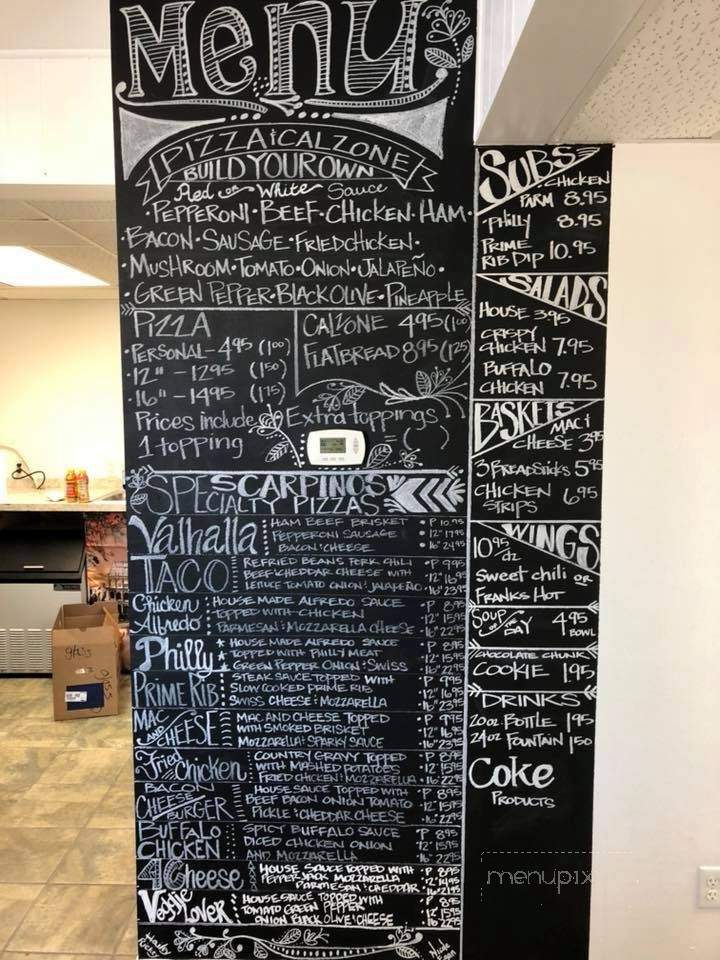 Menu
PIZZA & CALZONE
BUILD YOUR OWN
Red or White Sauce
• PEPPERONI • BEEF • CHICKEN • HAM •
BACON • SAUSAGE • FRIED CHICKEN •
• MUSHROOM • TOMATO • ONION • JALAPEÑO •
• GREEN PEPPER • BLACK OLIVE • PINEAPPLE
PIZZA
• PERSONAL - 4.95 (1.00)
• 12" - 12.95 (1.50)
• 16" - 14.95 (1.75)
Prices include
1 topping
CALZONE 4.95 (1.00)
FLATBREAD 8.95 (1.25)
Extra toppings
= ( )
SCARPINOS
SPECIALTY PIZZAS
Valhalla
HAM BEEF BRISKET • P 10.95
PEPPERONI SAUSAGE • 12" 17.95
BACON & CHEESE • 16" 24.95
TACO
REFRIED BEANS PORK CHILI • P 9.95
BEEF & CHEDDAR CHEESE WITH • 12" 16.95
LETTUCE TOMATO ONION & JALAPEÑO • 16" 23.95
Chicken Alfredo
HOUSE MADE ALFREDO SAUCE • P 8.95
TOPPED WITH CHICKEN • 12" 15.95
PARMESAN & MOZZARELLA CHEESE • 16" 22.95
Philly
HOUSE MADE ALFREDO SAUCE • P 8.95
TOPPED WITH PHILLY MEAT • 12" 15.95
GREEN PEPPER ONION & SWISS • 16" 22.95
PRIME RIB
STEAK SAUCE TOPPED WITH • P 9.95
SLOW COOKED PRIME RIB • 12" 16.95
SWISS CHEESE & MOZZARELLA • 16" 23.95
MAC AND CHEESE
MAC AND CHEESE TOPPED • P 9.95
WITH SMOKED BRISKET • 12" 16.95
MOZZARELLA & SPARKY SAUCE • 16" 23.95
Fried Chicken
COUNTRY GRAVY TOPPED • P 8.95
WITH MASHED POTATOES • 12" 15.95
FRIED CHICKEN & MOZZARELLA • 16" 22.95
BACON CHEESE BURGER
HOUSE SAUCE TOPPED WITH • P 8.95
BEEF BACON ONION TOMATO • 12" 15.95
PICKLE & CHEDDAR CHEESE • 16" 22.95
BUFFALO CHICKEN
SPICY BUFFALO SAUCE • P 8.95
DICED CHICKEN ONION • 12" 15.95
AND MOZZARELLA • 16" 22.95
4 Cheese
HOUSE SAUCE TOPPED WITH • P 8.95
PEPPER JACK MOZZARELLA • 12" 14.95
PARMESAN & CHEDDAR • 16" 21.95
Veggie Lover
HOUSE SAUCE TOPPED WITH • P 8.95
TOMATO GREEN PEPPER • 12" 15.95
ONION BLACK OLIVE & CHEESE • 16" 22.95
SUBS
• CHICKEN PARM 8.95
• PHILLY 8.95
PRIME RIB DIP 10.95
SALADS
HOUSE 3.95
CRISPY CHICKEN 7.95
BUFFALO CHICKEN 7.95
BASKETS
MAC & CHEESE 3.95
3 BREADSTICKS 5.95
CHICKEN STRIPS 6.95
WINGS
10.95 dz
Sweet chili or
FRANKS HOT
SOUP OF THE DAY 4.95 BOWL
CHOCOLATE CHUNK
COOKIE 1.95
DRINKS
20oz BOTTLE 1.95
24oz FOUNTAIN 1.50
Coke
PRODUCTS
menupix